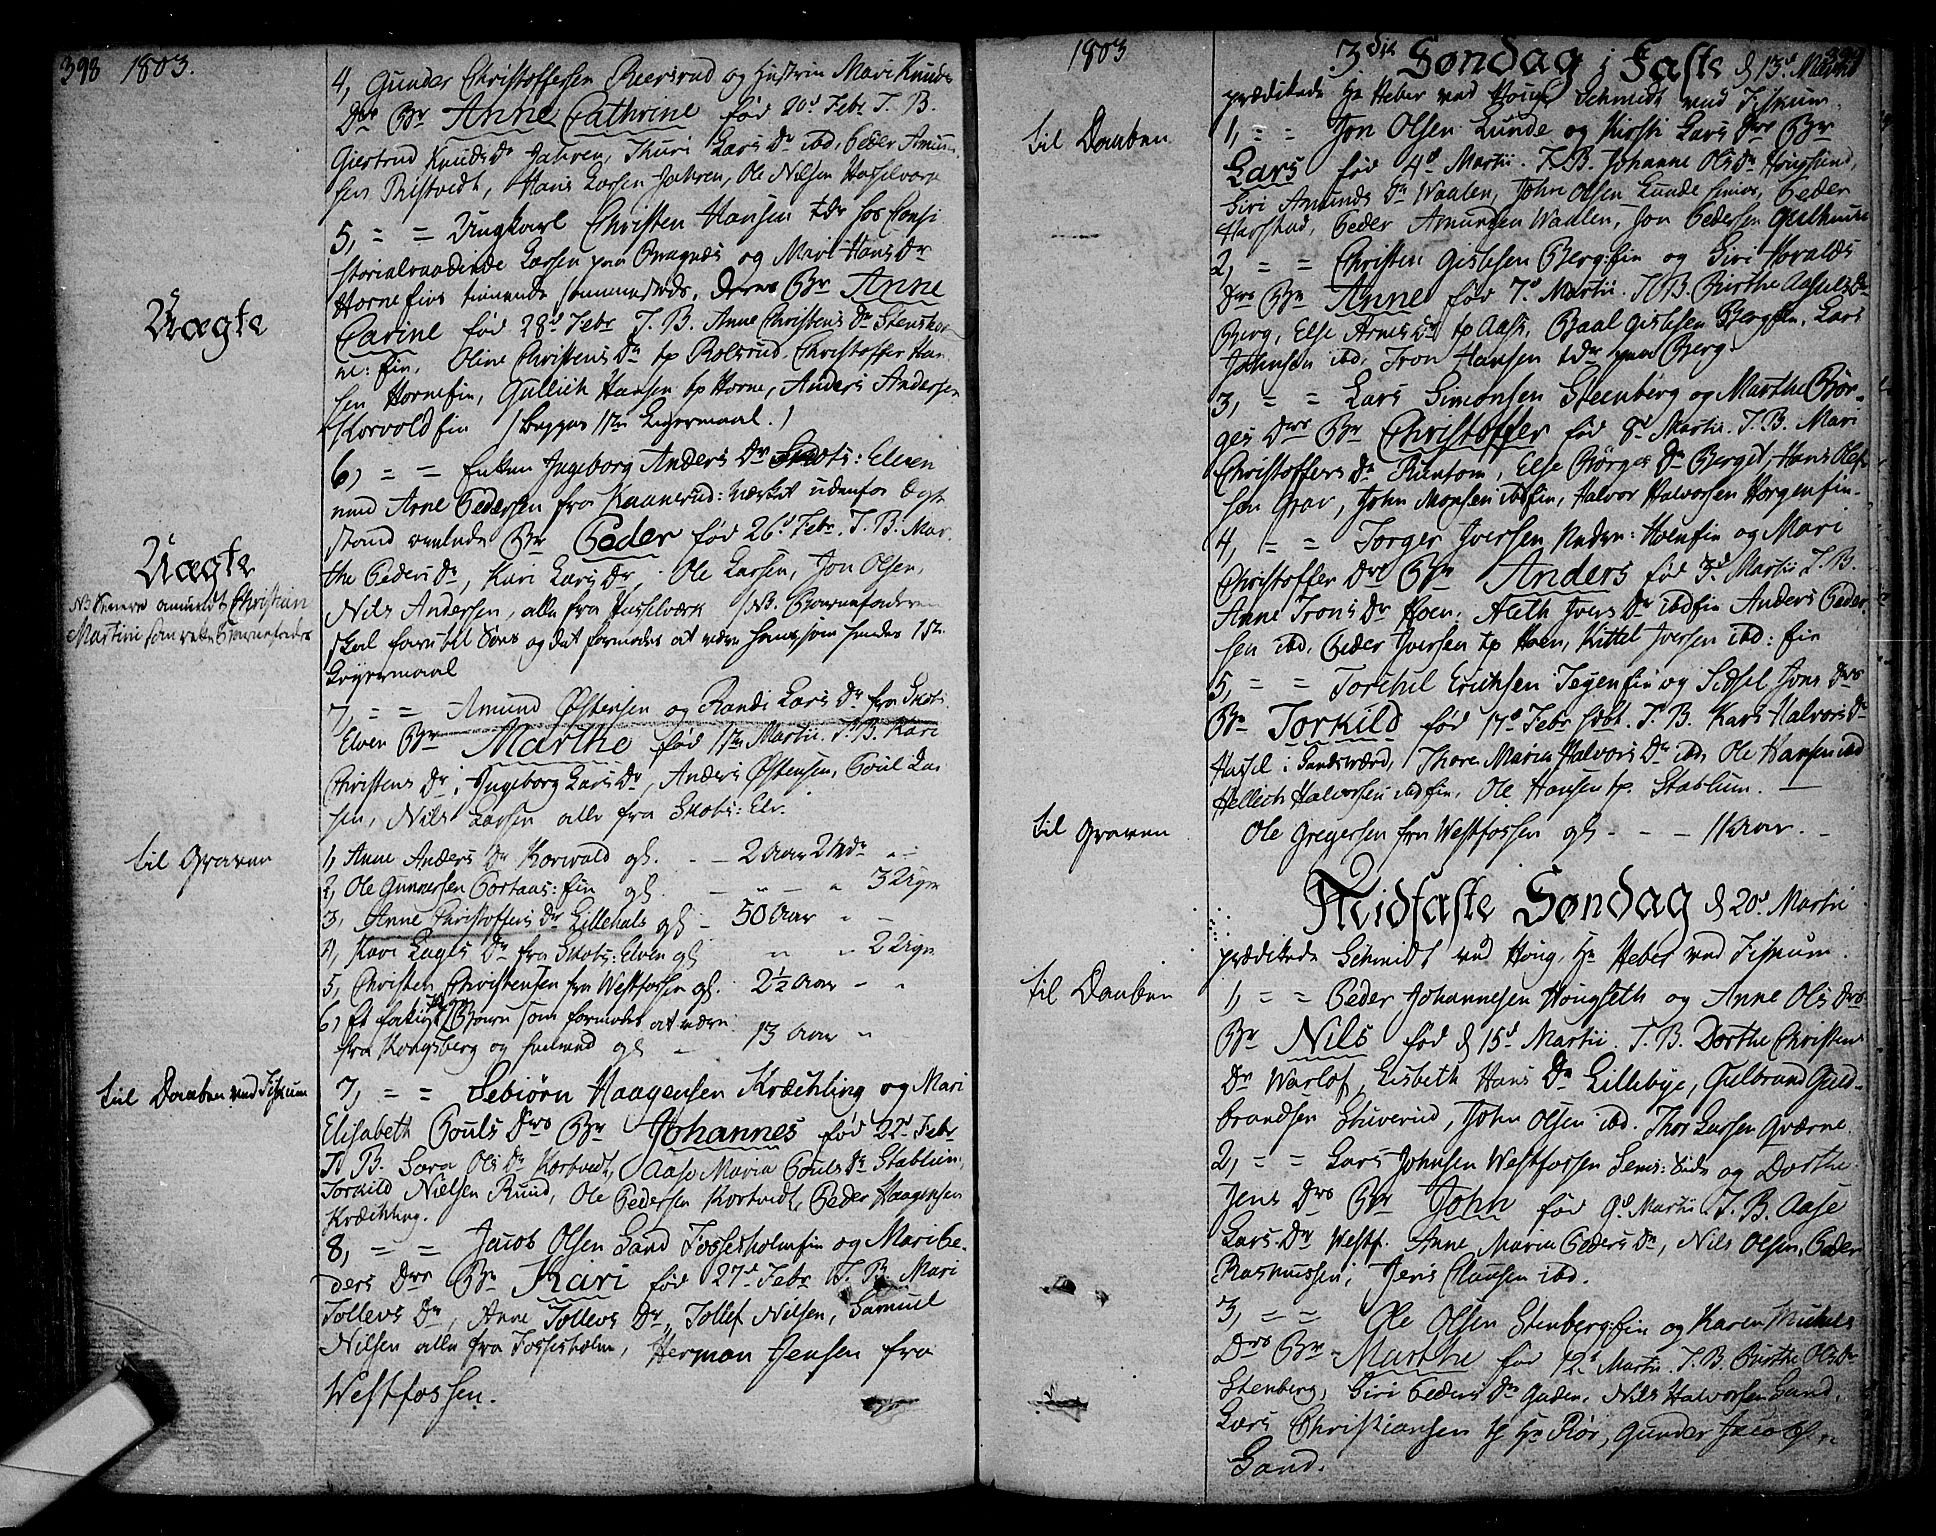 398 1803.
4, Gunder Christoffersen Beersrud og Hustrue Mari Knuds
Dr Bn Anne Cathrine fød 20d Febr T. B.
Giertrud Knuds Dr Jahren, Thuri Lars Dr ibd, Peder Amun
sen Tristvedt, Hans Larsen Jahren, Ole Nilsen Hasselværk
Uægte
5, = = Ungkarl Christen Hansen tdr hos Consi
storialraadinde Larsen paa Bragnæs og Mari Hans Dr
Horne fin tienende sammesteds, deres Bn Anne
Carine fød 28d Febr T. B. Anne Christens Dr Stenshor
ne: fin, Oline Christens Dr tp Rolsrud, Christoffer Han
sen Hornefin, Gullich Hansen tp Horne, Anders Andersen
Korvoldfin (begges 1ste Leyermaal.)
Uægte
NB Senere anmeldt Christian
Martini som rette Barnefader
6, = = Enken Ingeborg Anders Dr Skots: Elven
med Arne Pedersen fra Kaanerud: værket udenfor Ægte
stand avlede Bn Peder fød 26d Febr. T. B. Mar
the Peders Dr, Kari Lars Dr, Ole Larsen, Jon Olsen,
Nils Andersen, alle fra Hasselværk (NB. Barnefaderen
skal faret til Søes og det formodes at være hans som hendes 1ste
Leyermaal
7, = = Amund Østensen og Randi Lars Dr fra Skots
Elven Bn Marthe fød 1ste Martii. T. B. Kari
Christens Dr, Ingeborg Lars Dr, Anders Østensen, Poul Lar
sen, Nils Larsen alle fra Skots: Elv.
til Graven
1, Anne Anders Dr Korvald gl. - - 2 Aar 2 Mdr
2, Ole Gunnersen Portaas: fin gl. - - 3 Uger
3, Anne Christoffers Dr Lillehals gl - 50 Aar
4, Kari Engels Dr fra Skots: Elven gl 2 Uger
5, Christen Christensen fra Westfossen gl. 2½ Aar - -
6, Et fattigt Barn som formodes at være
fra Kongsberg og gl - 13 Aar
til Daaben ved Fiskum
7, = = Tebiörn Haagensen Kræchling og Mari
Elisabeth Pouls Drs Bn Johannes fød 22d Febr
T. B. Sara Ols Dr Kortvedt, Aase Maria Pouls Dr Stablum,
Torkild Nielsen Rund, Ole Pedersen Kortvidt, Peder Haagensen
Kræchling.
8, = = Jacob Olsen Sand Fossesholmfin og Mari Pe-
ders Dr Bn Kari fød 27d Febr T. B. Mari
Tollevs Dr, Anne Tollevs Dr, Tollef Nilsen, Samuel
Nilsen alle fra Fossesholm, Herman Jensen fra
Westfossen.
1803 399
3die Søndag i Faste d 13d Martii
prædikede Hr Heber ved Houg Schmidt ved Fiskum.
til Daaben
1, = = Jon Olsen Lunde og Kirsti Lars Drs Bn
Lars fød 4d Martii. T. B. Johanne Ols Dr Hougsund,
Siri Amunds Dr Waalen, John Olsen Lunde senior, Peder
Harstad, Peder Amunsen Waalen, Jon Pedersen
2, = = Christen Gislesen Berg: fin og Siri Haralds
Drs Bn Anne fød 7d Martii. T. B. Birthe Aslels Dr
Berg, Else Arnes Dr tp Aass, Paal Gislesen Bergfin, Lars
Johnsen ibd, Tron Hansen tdr paa Berg.
3, = = Lars Simonsen Steenberg og Marthe Bør-
ges Drs Bn Christoffer fød 8d Martii. T. B. Mari
Christoffers Dr Runtom, Else Børges Dr Berget, Hans Olef
sen Grav, John Monsen ibdfin, Halvor Halvorsen Horgenfin.
4, = = Torger Iversen Neder: Hoenfin og Mari
Christoffer Drs Bn Anders fød 3d Martii T. B.
Anne Trons Dr Hoen, Aleth Ivers Dr ibdfin Anders Peder
sen ibd, Peder Iversen tp Hoen, Kittel Iversen ibd: fin
5, = = Torchil Erichsen Tegenfin og Sidsel Jons Drs
Bn Torkild fød 17d Febr hdbt. T. B. Kari Halvors Dr
Hassel i Sandsværd, Thore Maria Halvors Dr ibd, Ole Hansen ibd
Hellech Halvorsen ibdfin, Ole Hansen tp. Stablum. -
til Graven
Ole Gregersen fra Westfossen gl - - - 11 Aar. -
Midfaste Søndag d 20d Martii
prædikede Schmidt ved Houg, Hr Heber ved Fiskum.
til Daaben
1, = = Peder Johannesen Hougseth og Anne Ols Drs
Bn Nils fød d 15d Martii. T. B. Dorthe Christens
Dr Warlof, Lisbeth Hans Dr Lillebye, Gulbrand Guld-
brandsen Stuverud, John Olsen ibd. Thor Larsen Qværne.
2, = = Lars Johnsen Westfossen Sems: Side og Dorthe
Jens Drs Bn John fød 9d Martii T. B. Aase
Lars Dr Westf. Anne Maria Peders Dr, Nils Olsen, Peder
Rasmussen, Jens Clausen ibd.
3, = = Ole Olsen Stenberg: fin og Karen Michels
Drs Bn Marthe fød 12d Martii. T. B. Birthe Ols Dr
Stenberg, Siri Peders Dr Gaden, Nils Halvorsen Sand,
Lars Christiansen Hr Rør, Gunder Jacobsen
Sand.